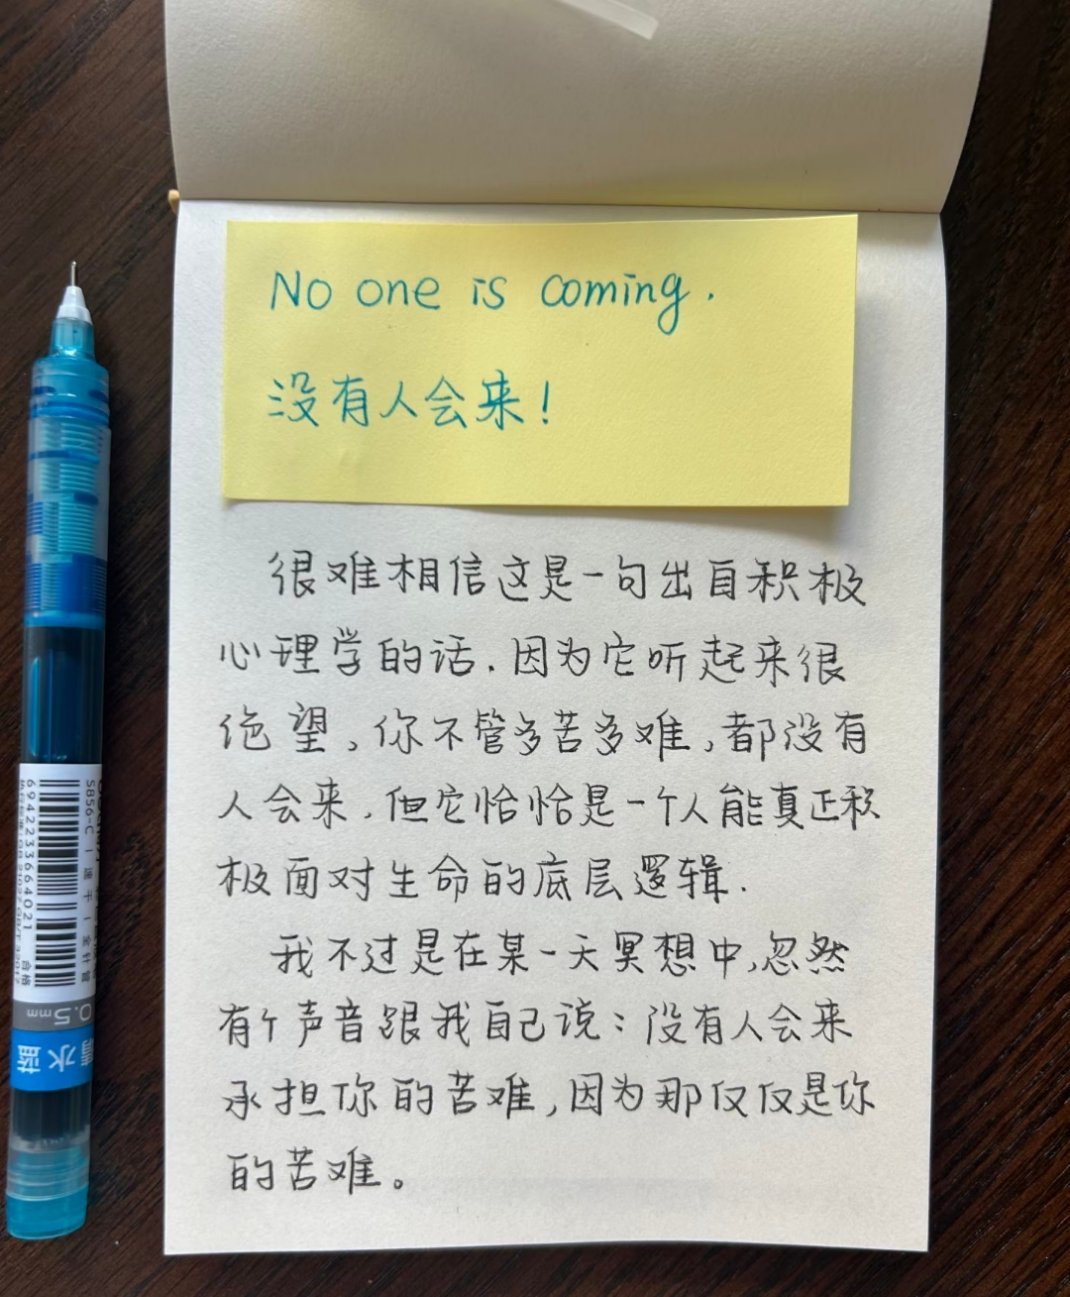 No one is coming.
没有人会来！
很难相信这是一句出自积极
心理学的话.因为它听起来很
绝望,你不管多苦多难,都没有
人会来.但它恰恰是一个人能真正积
极面对生命的底层逻辑.
我不过是在某一天冥想中,忽然
有个声音跟我自己说:没有人会来
承担你的苦难,因为那仅仅是你
的苦难。
6942233664021
合格
S856-C | 速干 | 全针管
0.5mm
晴水蓝